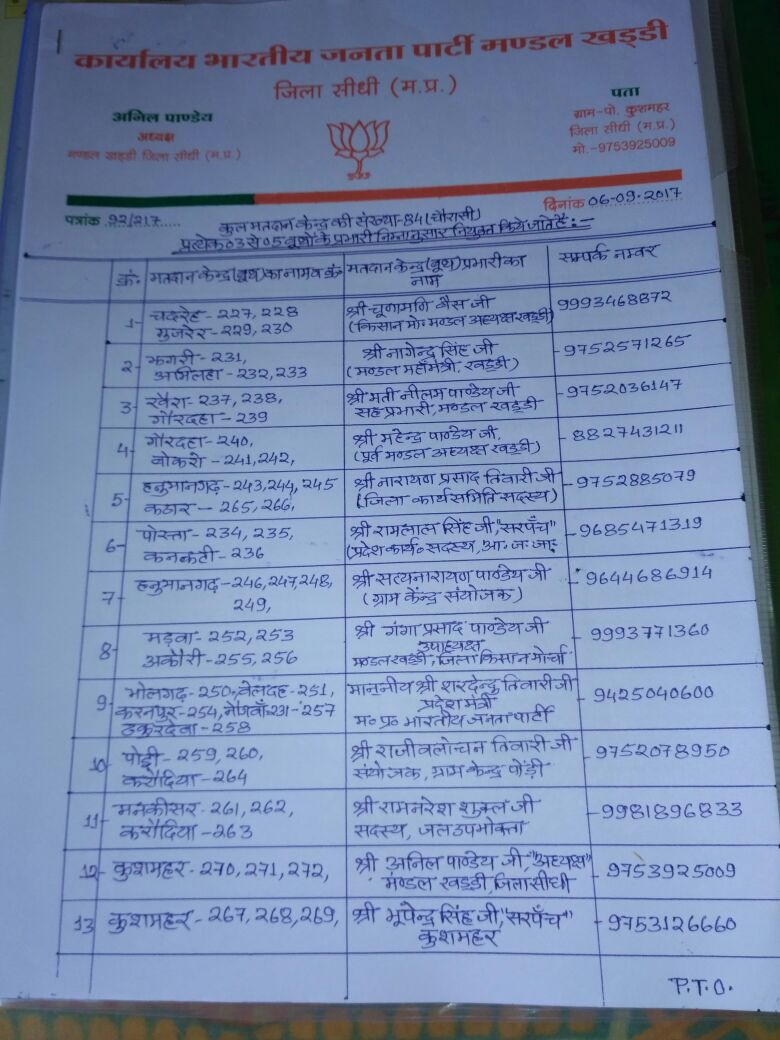 कार्यालय भारतीय जनता पार्टी मण्डल खड्डी
जिला सीधी (म.प्र.)
अनिल पाण्डेय
अध्यक्ष
मण्डल खड्डी जिला सीधी (म.प्र.)
पता
ग्राम-पो. कुशमहर
जिला सीधी (म.प्र.)
मो.-9753925009
पत्रांक 92/217
दिनांक 06-09-2017
कुल मतदान केन्द्र की संख्या-84 (चौरासी)
प्रत्येक 03 से 05 बूथों के प्रभारी निम्नानुसार नियुक्त किये जाते हैं:-
क्रं. मतदान केन्द्र (बूथ) का नाम व क्रं. मतदान केन्द्र (बूथ) प्रभारी का नाम सम्पर्क नम्बर
1- चदरेह-227, 228 श्री चूणामणि बैस जी 9993468872
गुजरेर-229, 230 (किसान मो. मण्डल अध्यक्ष खड्डी)
2- झगरी-231, श्री नागेन्द्र सिंह जी -9752571265
अमिलहा-232, 233 (मण्डल महामंत्री, खड्डी)
3- खैरा-237, 238, श्री मती नीलम पाण्डेय जी -9752036147
गौरदहा-239 सह प्रभारी, मण्डल खड्डी
4- गौरदहा-240, श्री महेन्द्र पाण्डेय जी, -8827431211
बोकरो-241, 242, (पूर्व मण्डल अध्यक्ष खड्डी)
5- हनुमानगढ़-243, 244, 245 श्री नारायण प्रसाद तिवारी जी -9752885079
कठार-265, 266, (जिला कार्य समिति सदस्य)
6- पोस्ता-234, 235, श्री रामलाल सिंह जी, "सरपँच" -9685471319
कनकटी-236 (प्रदेश कार्य. सदस्य, आ. ज. जा.
7- हनुमानगढ़-246, 247, 248, श्री सत्यनारायण पाण्डेय जी -9644686914
249, (ग्राम केंन्द्र संयोजक)
8- मड़वा-252, 253 श्री गंगा प्रसाद पाण्डेय जी -9993771360
अकौरी-255, 256 उपाध्यक्ष
मण्डल खड्डी, जिला किसान मोर्चा
9- भोलगढ़-250, बेलदह-251, माननीय श्री शरदेन्दु तिवारी जी -9425040600
करनपुर-254, -257 प्रदेश मंत्री
ठकुरदेवा-258 म० प्र० भारतीय जनता पार्टी
10- पोंड़ी-259, 260, श्री राजीवलोचन तिवारी जी -9752078950
करौदिया-264 संयोजक, ग्राम केन्द्र पोंड़ी
11- मनकीसर-261, 262, श्री रामनरेश शुक्ल जी -9981896833
करौदिया-263 सदस्य, जल उपभोक्ता
12- कुशमहर-270, 271, 272, श्री अनिल पाण्डेय जी, "अध्यक्ष" -9753925009
मण्डल खड्डी, जिला सीधी
13 कुशमहर-267, 268, 269, श्री भूपेन्द्र सिंह जी, "सरपँच" -9753126660
कुशमहर
P.T.O.